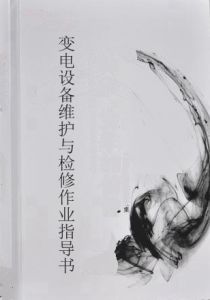 变电设备维护与检修作业指导书